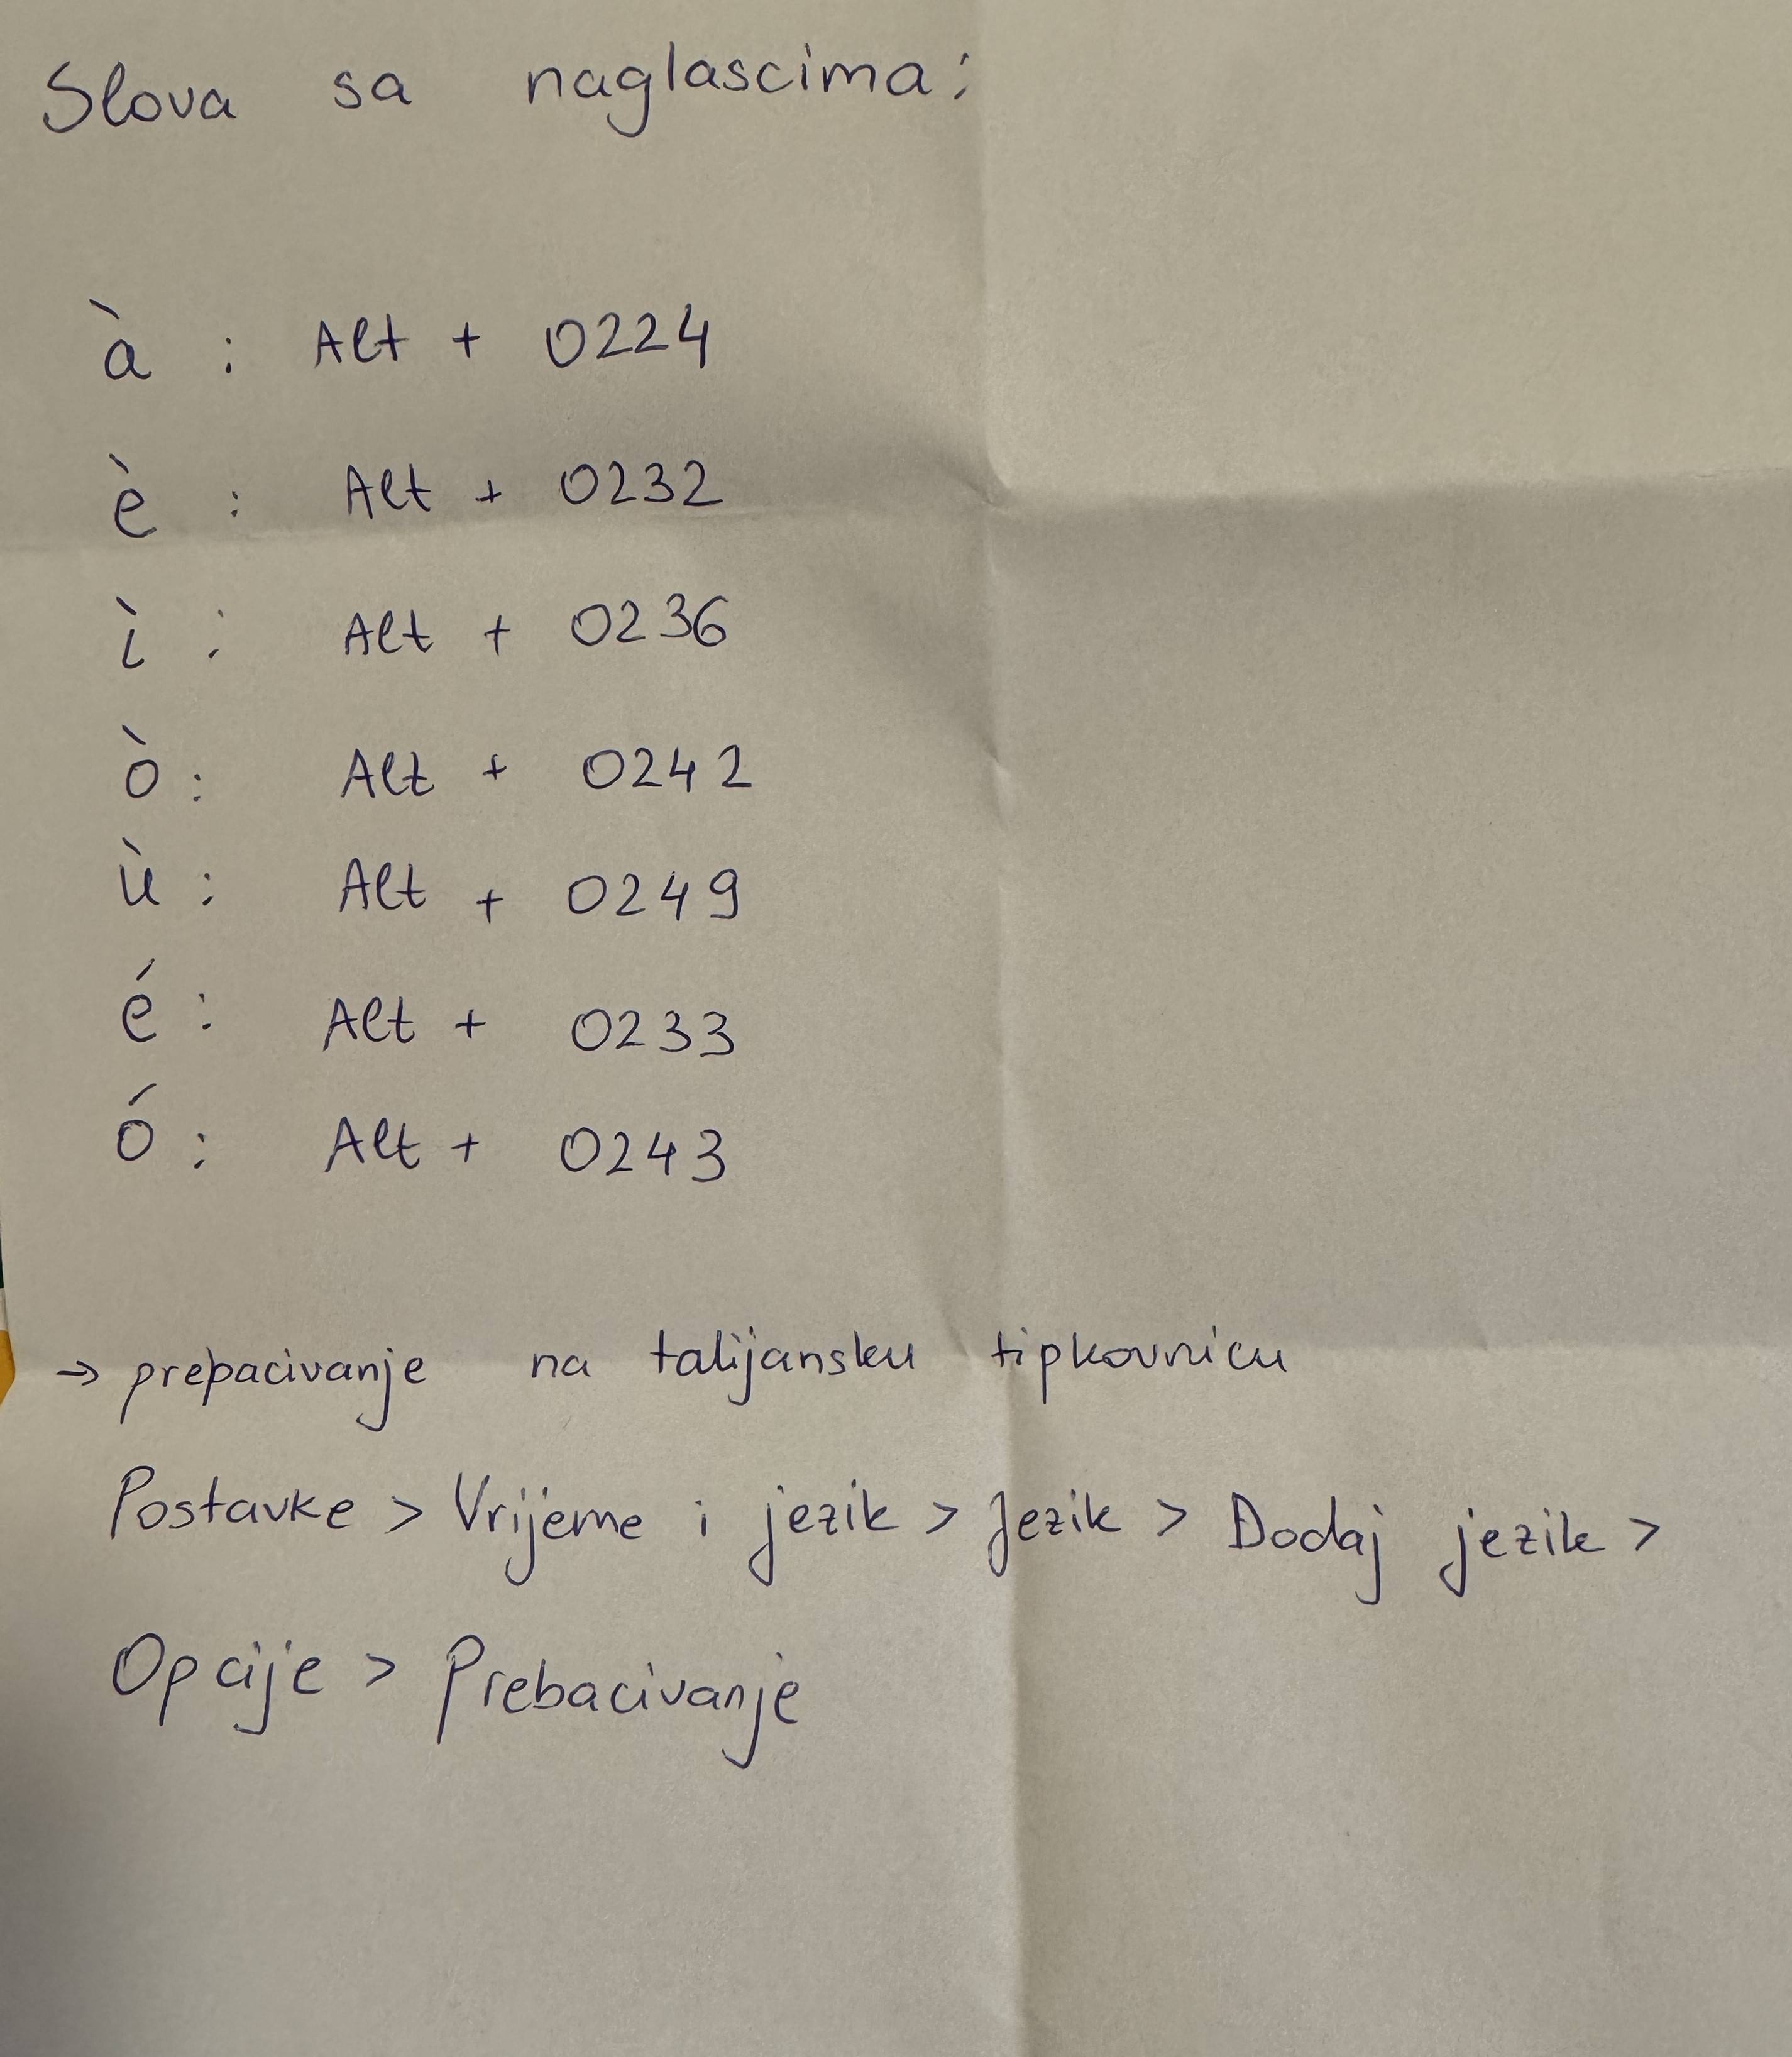 Slova sa naglascima:
à : Alt + 0224
è : Alt + 0232
ì : Alt + 0236
ò : Alt + 0242
ù : Alt + 0249
é : Alt + 0233
ó : Alt + 0243
→ prebacivanje na talijansku tipkovnicu
Postavke > Vrijeme i jezik > Jezik > Dodaj jezik >
Opcije > Prebacivanje